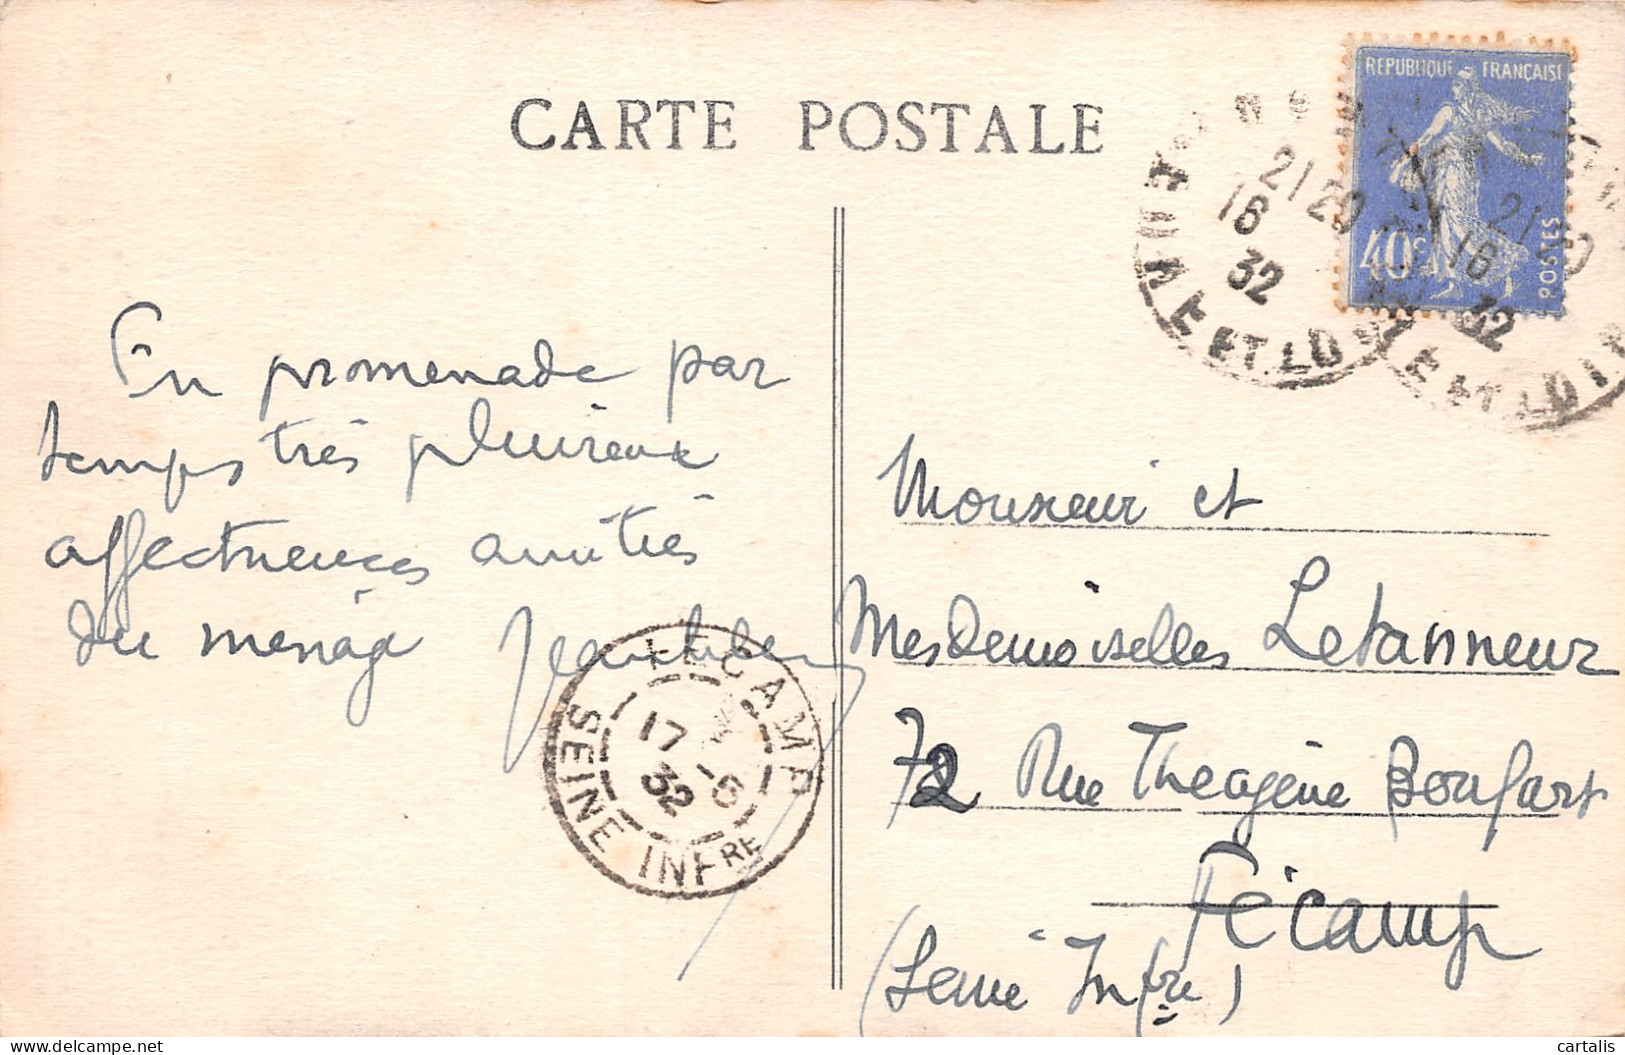 CARTE POSTALE
REPUBLIQUE FRANÇAISE
40c
POSTES
21 20
16
32
ET LOI
21
16
32
E ET LOIR
En promenade par
temps très pluvieux
affectueuses amitiés
du ménage
FECAMP
17 -6
32
SEINE INFRE
Monsieur et
Mesdemoiselles Letanneur
72 Rue Theagène Boufart
Fécamp
(Seine Infre)
delcampe.net
cartalis